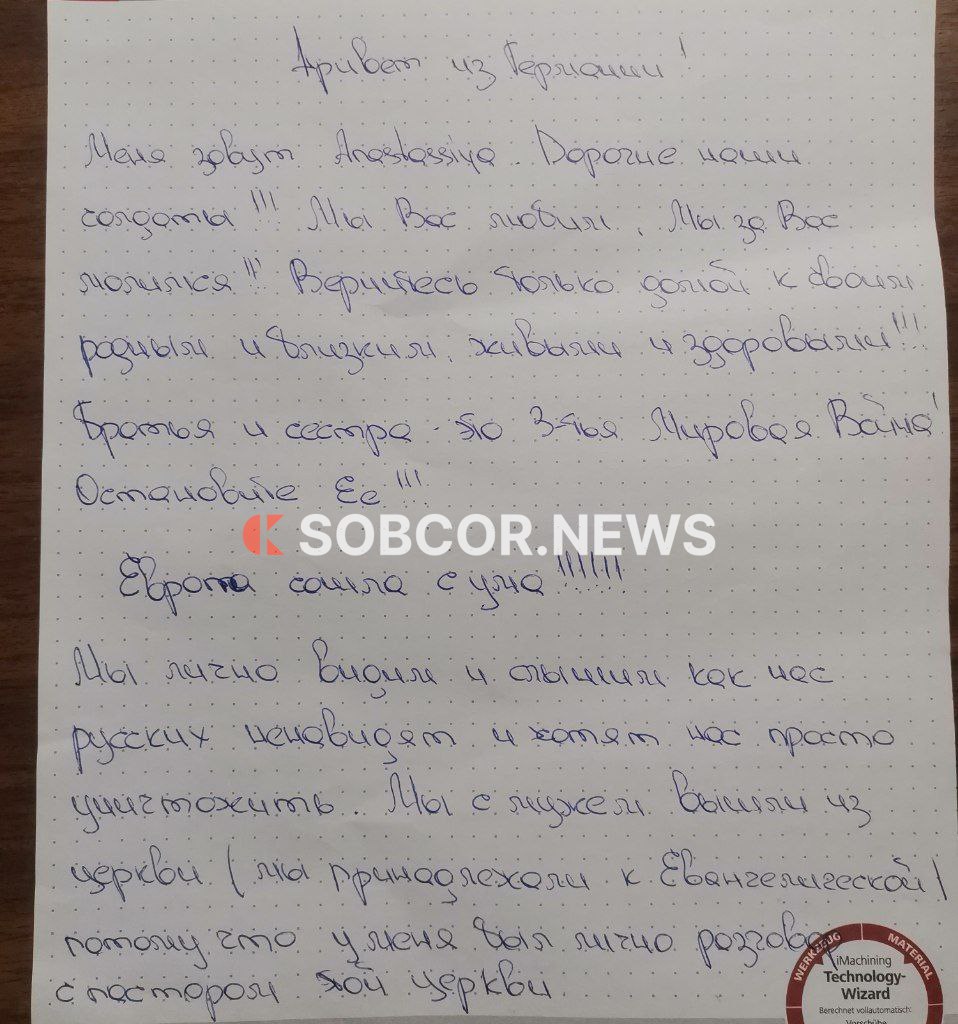 Привет из Германии!
Меня зовут Anastassiya. Дорогие наши
солдаты!!! Мы Вас любим, Мы за Вас
молимся!!! Вернитесь только домой к своим
родным и близким, живыми и здоровыми!!!
Братья и сестра это 3-тья Мировая Война!
Остановите Её!!!
SOBCOR.NEWS
Европа сошла с ума!!!!!!
Мы лично видим и слышим как нас
русских ненавидят и хотят нас просто
уничтожить. Мы с мужем вышли из
церкви (мы принадлежали к Евангелической)
потому что у меня был лично разговор
с пастором той церкви.
WERKZEUG MATERIAL
iMachining
Technology-
Wizard
Berechnet vollautomatisch:
Vorschübe